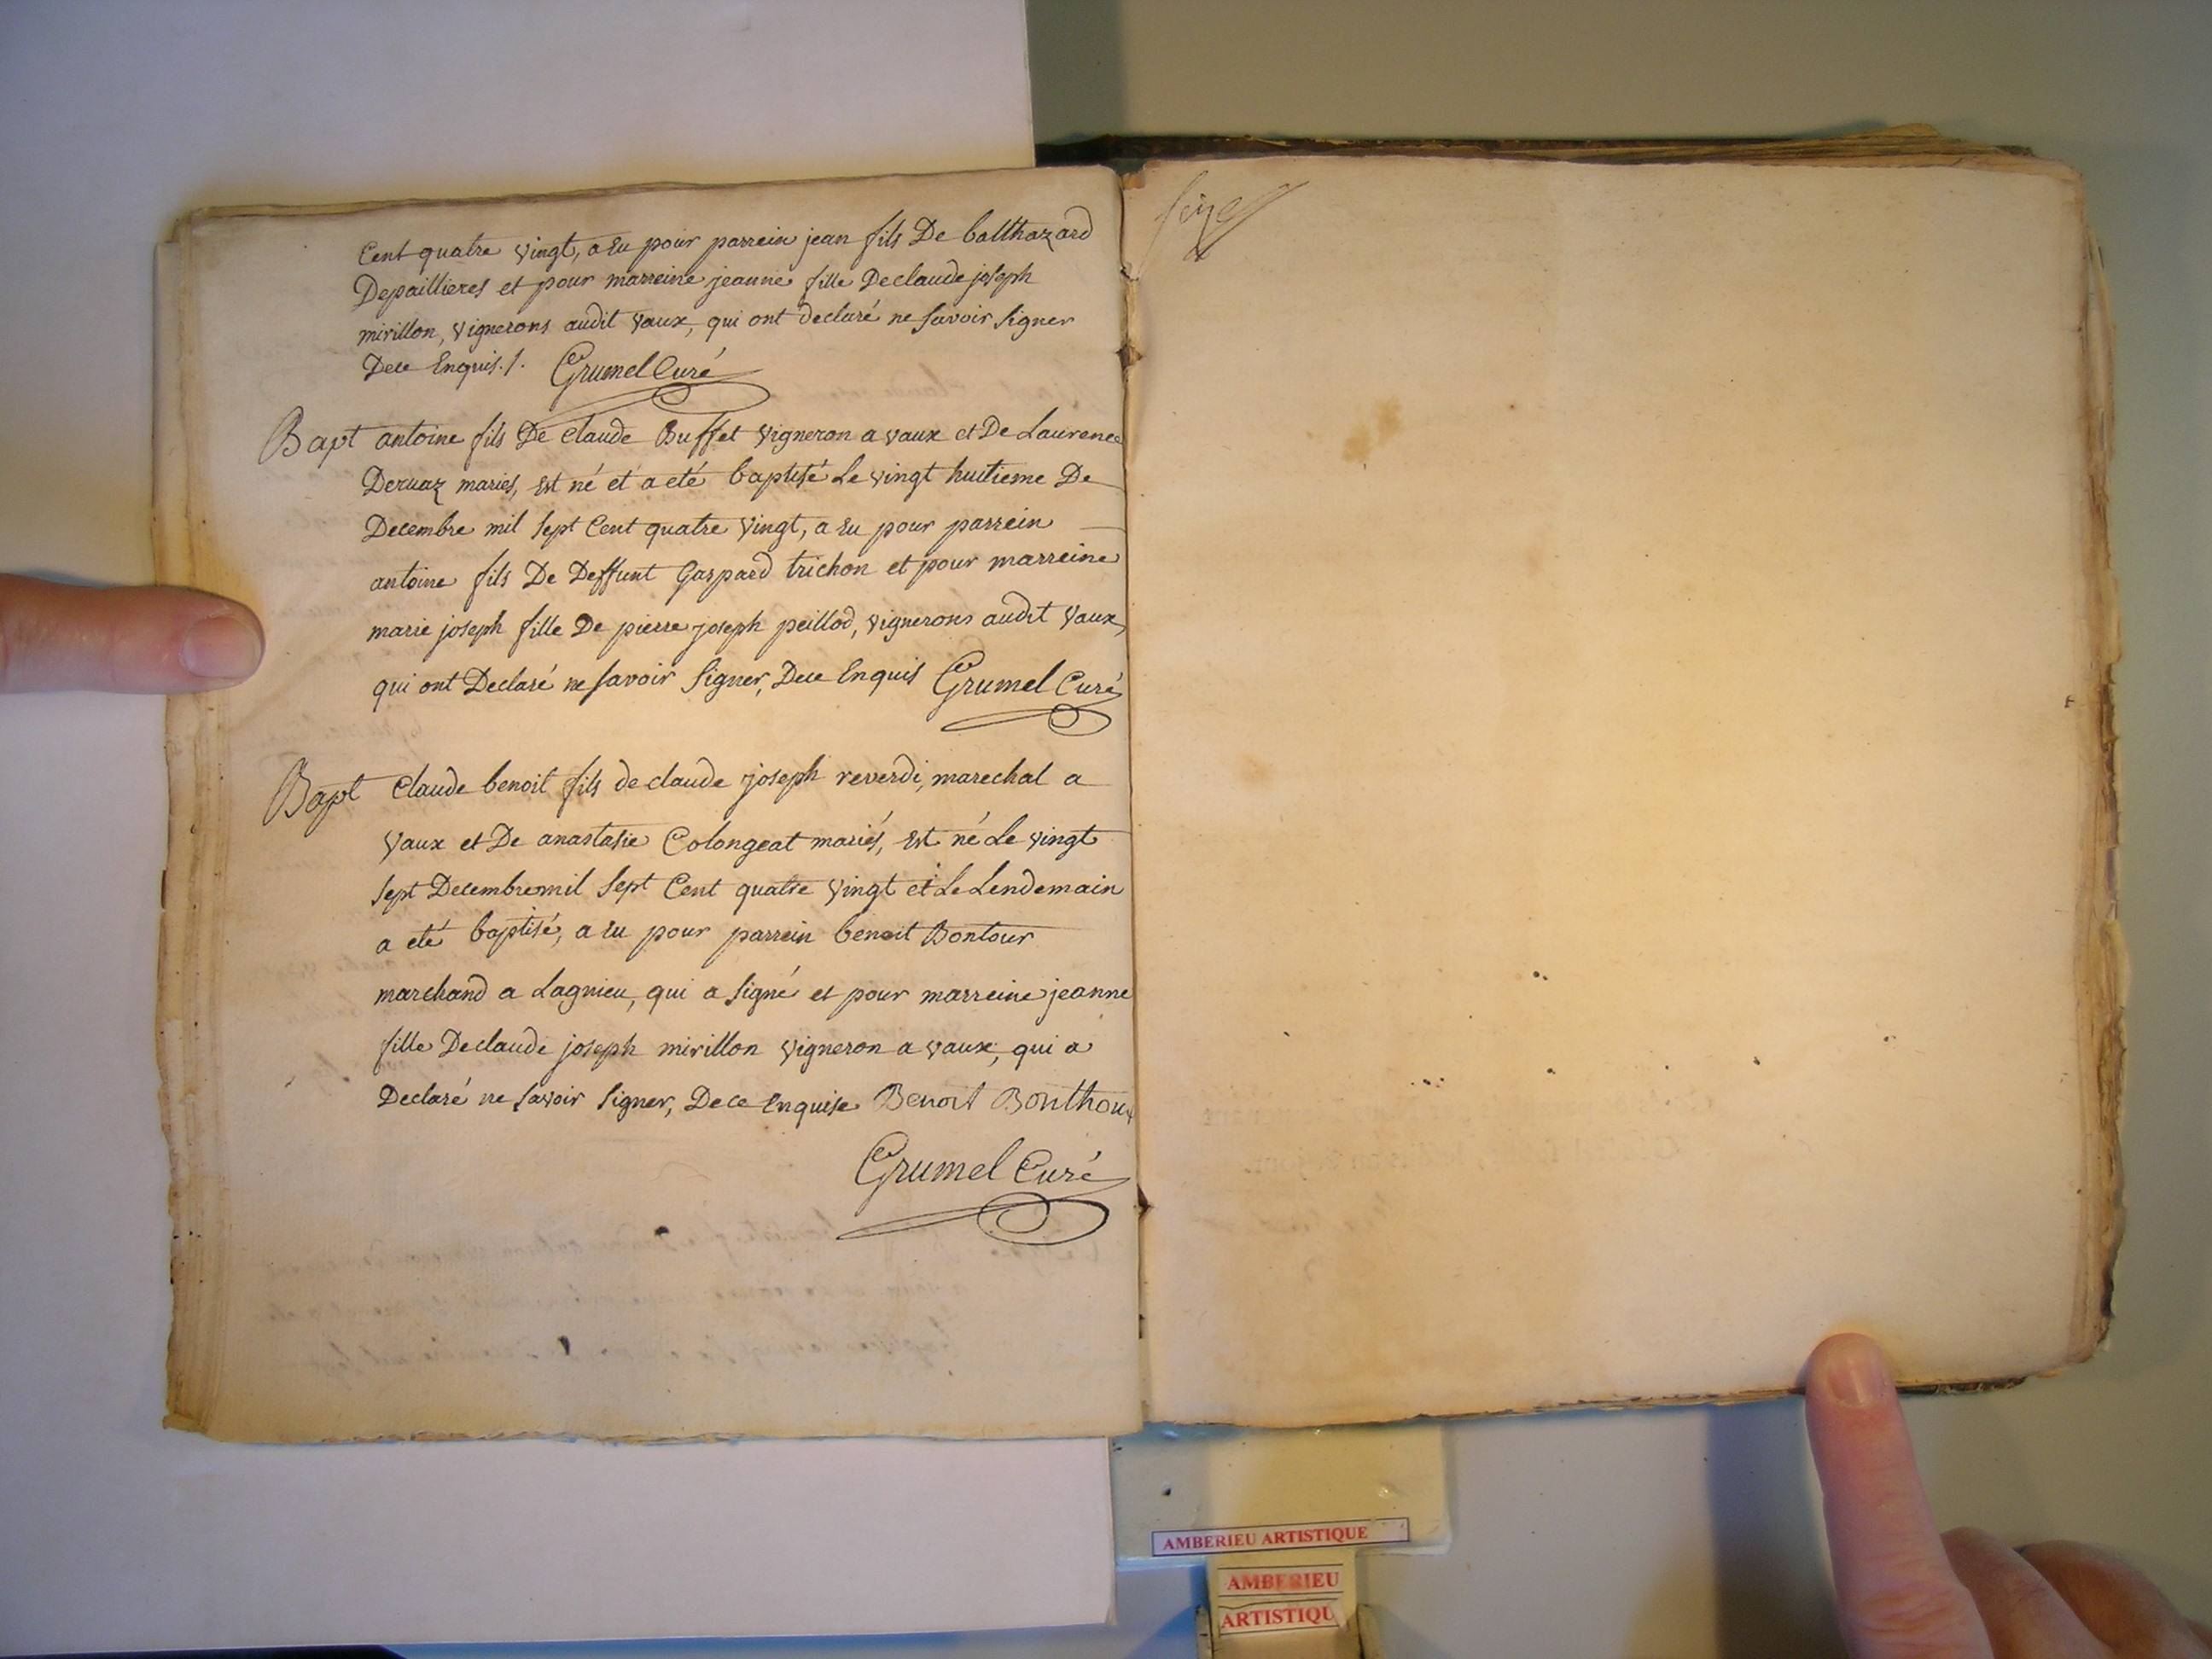 Cent quatre vingt, a eu pour parrein jean fils De balthazard
Depaillieres et pour marreine jeanne fille De claude joseph
mirillon, vignerons audit vaux, qui ont declaré ne savoir signer
Dece Enquis./. Grumel Curé
Bapt antoine fils De claude Buffet vigneron a vaux et De Laurence
Deruaz mariés, est né et a eté baptisé Le vingt huitieme De
Decembre mil sept Cent quatre vingt, a eu pour parrein
antoine fils De Deffunt Gaspard trichon et pour marreine
marie joseph fille De pierre joseph peillod, vignerons audit vaux,
qui ont Declaré ne savoir signer, Dece Enquis Grumel Curé
Bapt Claude benoit fils de claude joseph reverdi, marechal a
vaux et De anastasie Colongeat mariés, est né Le vingt
sept Decembre mil sept Cent quatre vingt et Le Lendemain
a eté baptisé, a eu pour parrein benoit Bontour
marchand a Lagnieu, qui a signé et pour marreine jeanne
fille De claude joseph mirillon vigneron a vaux, qui a
Declaré ne savoir signer, Dece Enquise Benoit Bonthoux
Grumel Curé
AMBERIEU ARTISTIQUE
AMBERIEU
ARTISTIQU